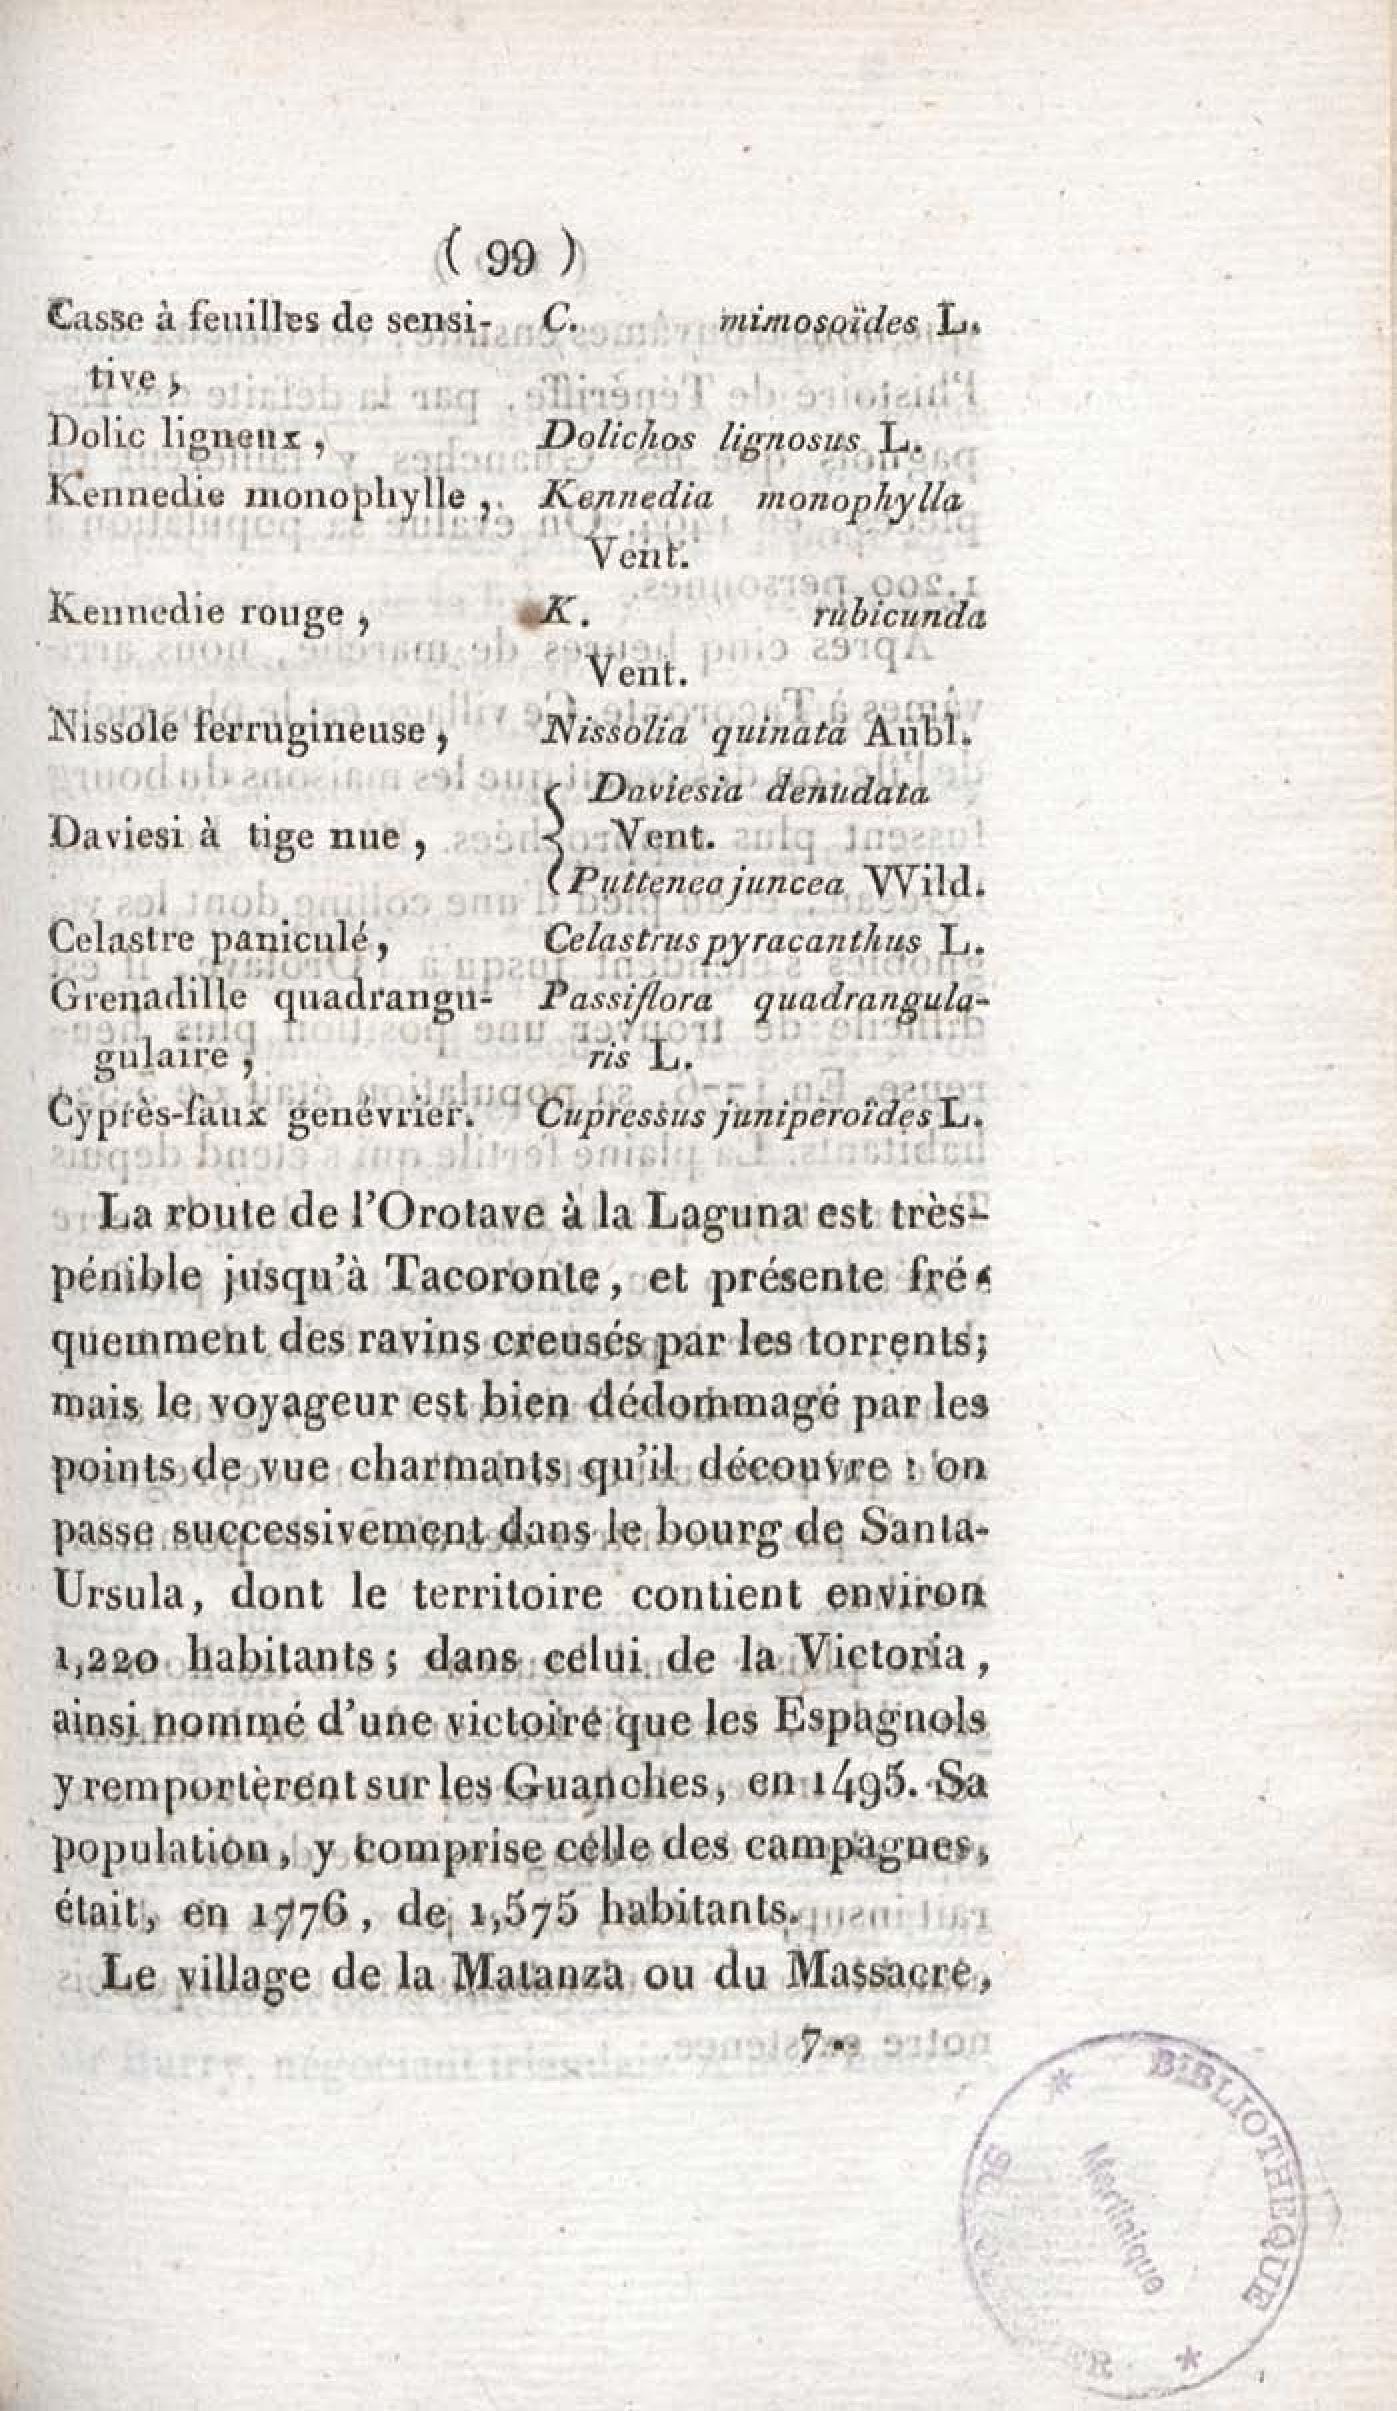 ( 99 )
Casse à feuilles de sensi- C. mimosoïdes L.
tive,
Dolic ligneux, Dolichos lignosus L.
Kennedie monophylle, Kennedia monophylla
Vent.
Kennedie rouge, K. rubicunda
Vent.
Nissole ferrugineuse, Nissolia quinata Aubl.
Daviesia denudata
Daviesi à tige nue, { Vent.
Putteneo juncea Wild.
Celastre paniculé, Celastrus pyracanthus L.
Grenadille quadrangu- Passiflora quadrangula-
gulaire, ris L.
Cyprès-faux genévrier. Cupressus juniperoïdes L.
La route de l'Orotave à la Laguna est très-
pénible jusqu'à Tacoronte, et présente fré-
quemment des ravins creusés par les torrents;
mais le voyageur est bien dédommagé par les
points de vue charmants qu'il découvre : on
passe successivement dans le bourg de Santa-
Ursula, dont le territoire contient environ
1,220 habitants; dans celui de la Victoria,
ainsi nommé d'une victoire que les Espagnols
y remportèrent sur les Guanches, en 1495. Sa
population, y comprise celle des campagnes,
était, en 1776, de 1,575 habitants.
Le village de la Matanza ou du Massacre,
7.
* BIBLIOTHEQUE *
Martinique